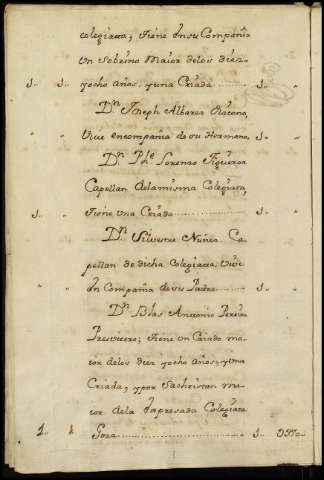 colegiata, tiene en su Compañia
un Sobrino Maior de los diez
1.. 1.. yocho años, y una Criada ........ 1.. "
Dn. Joseph Albares
" " Vive en compañia de su Hermano 1.. "
Dn. Phe. Lorenzo Figueroa
Capellan de la misma Colegiata,
1.. " tiene una Criada ........ 1.. "
Dn. Silvestre Nuñez Ca
pellan de dicha Colegiata Vive
" " En Compañia de su Padre ........ 1.. "
Dn. Blas Antonio Pereira
Presvitero; tiene un Criado ma
ior de los diez yocho años, y una
Criada, y por Sachristan ma
ior de la Expresada Colegiata
1.. 1 Goza ........ 1..